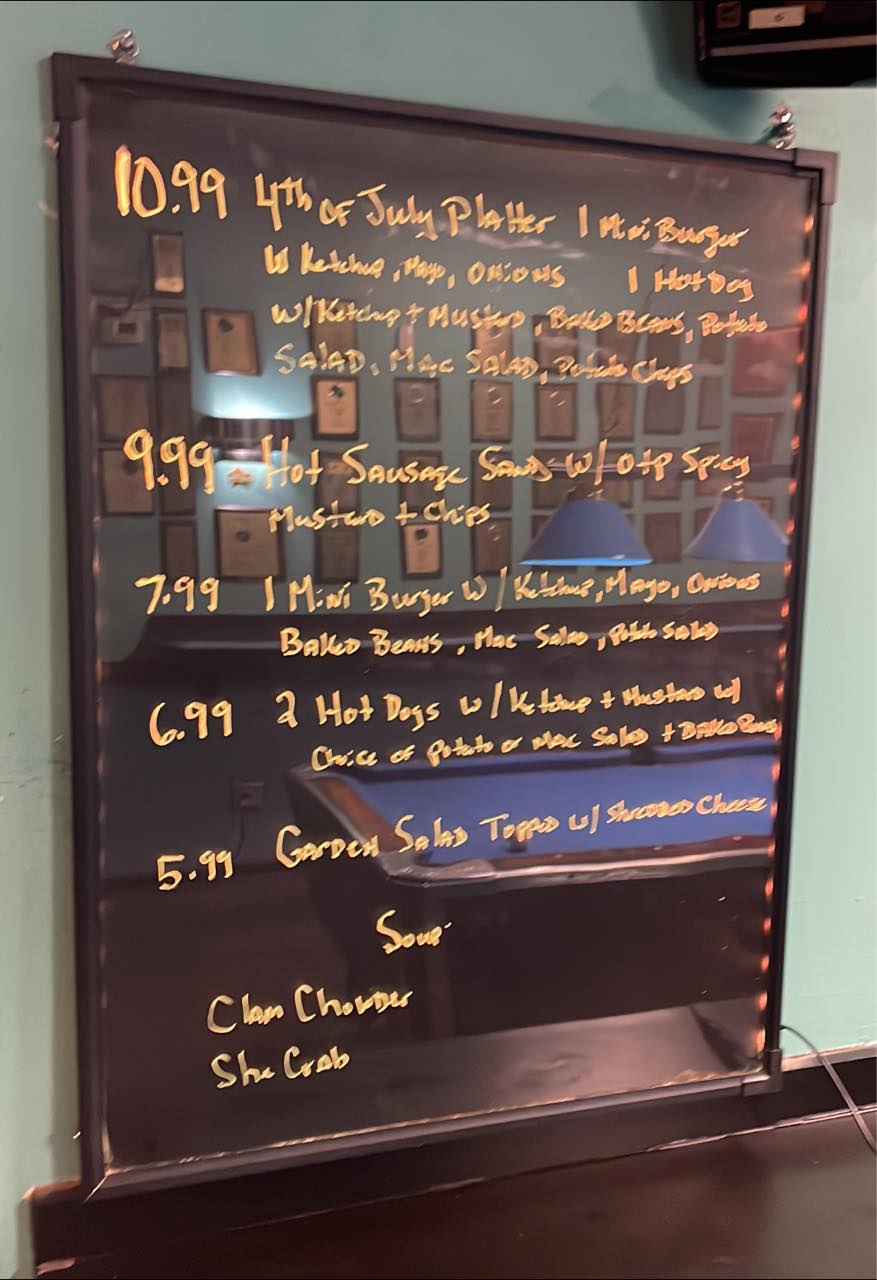 10.99 4th of July Platter 1 Mini Burger
W Ketchup, Mayo, Onions 1 Hot Dog
W/Ketchup + Mustard, Baked Beans, Potato
Salad, Mac Salad, Potato Chips
9.99 Hot Sausage Sand W/ Otp Spicy
Mustard + Chips
7.99 1 Mini Burger W/Ketchup, Mayo, Onions
Baked Beans, Mac Salad, Potato Salad
6.99 2 Hot Dogs w/Ketchup + Mustard w/
Choice of Potato or Mac Salad + Baked Beans
5.99 Garden Salad Topped w/ Shredded Cheese
Soup
Clam Chowder
She Crab